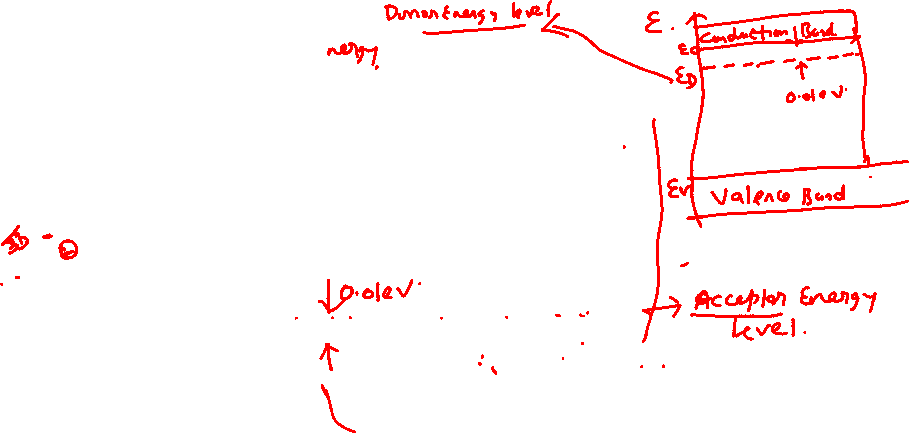 Donor Energy level
nergy
E.
Conduction Band
Ec
ED
0.01eV.
Ev
Valence Band
0.01eV.
Acceptor Energy
level.